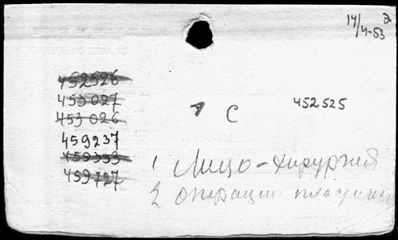 14/4-53 2
452526
453027
453026
459237
459353
459727
С 452525
1 Лицо-хирургия
2 операции пластич